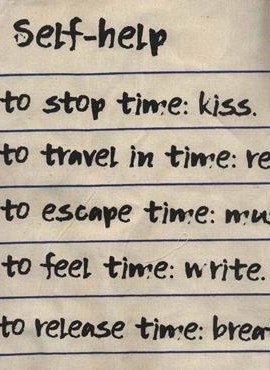 Self-help
to stop time: kiss.
to travel in time: re
to escape time: mu
to feel time: write.
to release time: brea